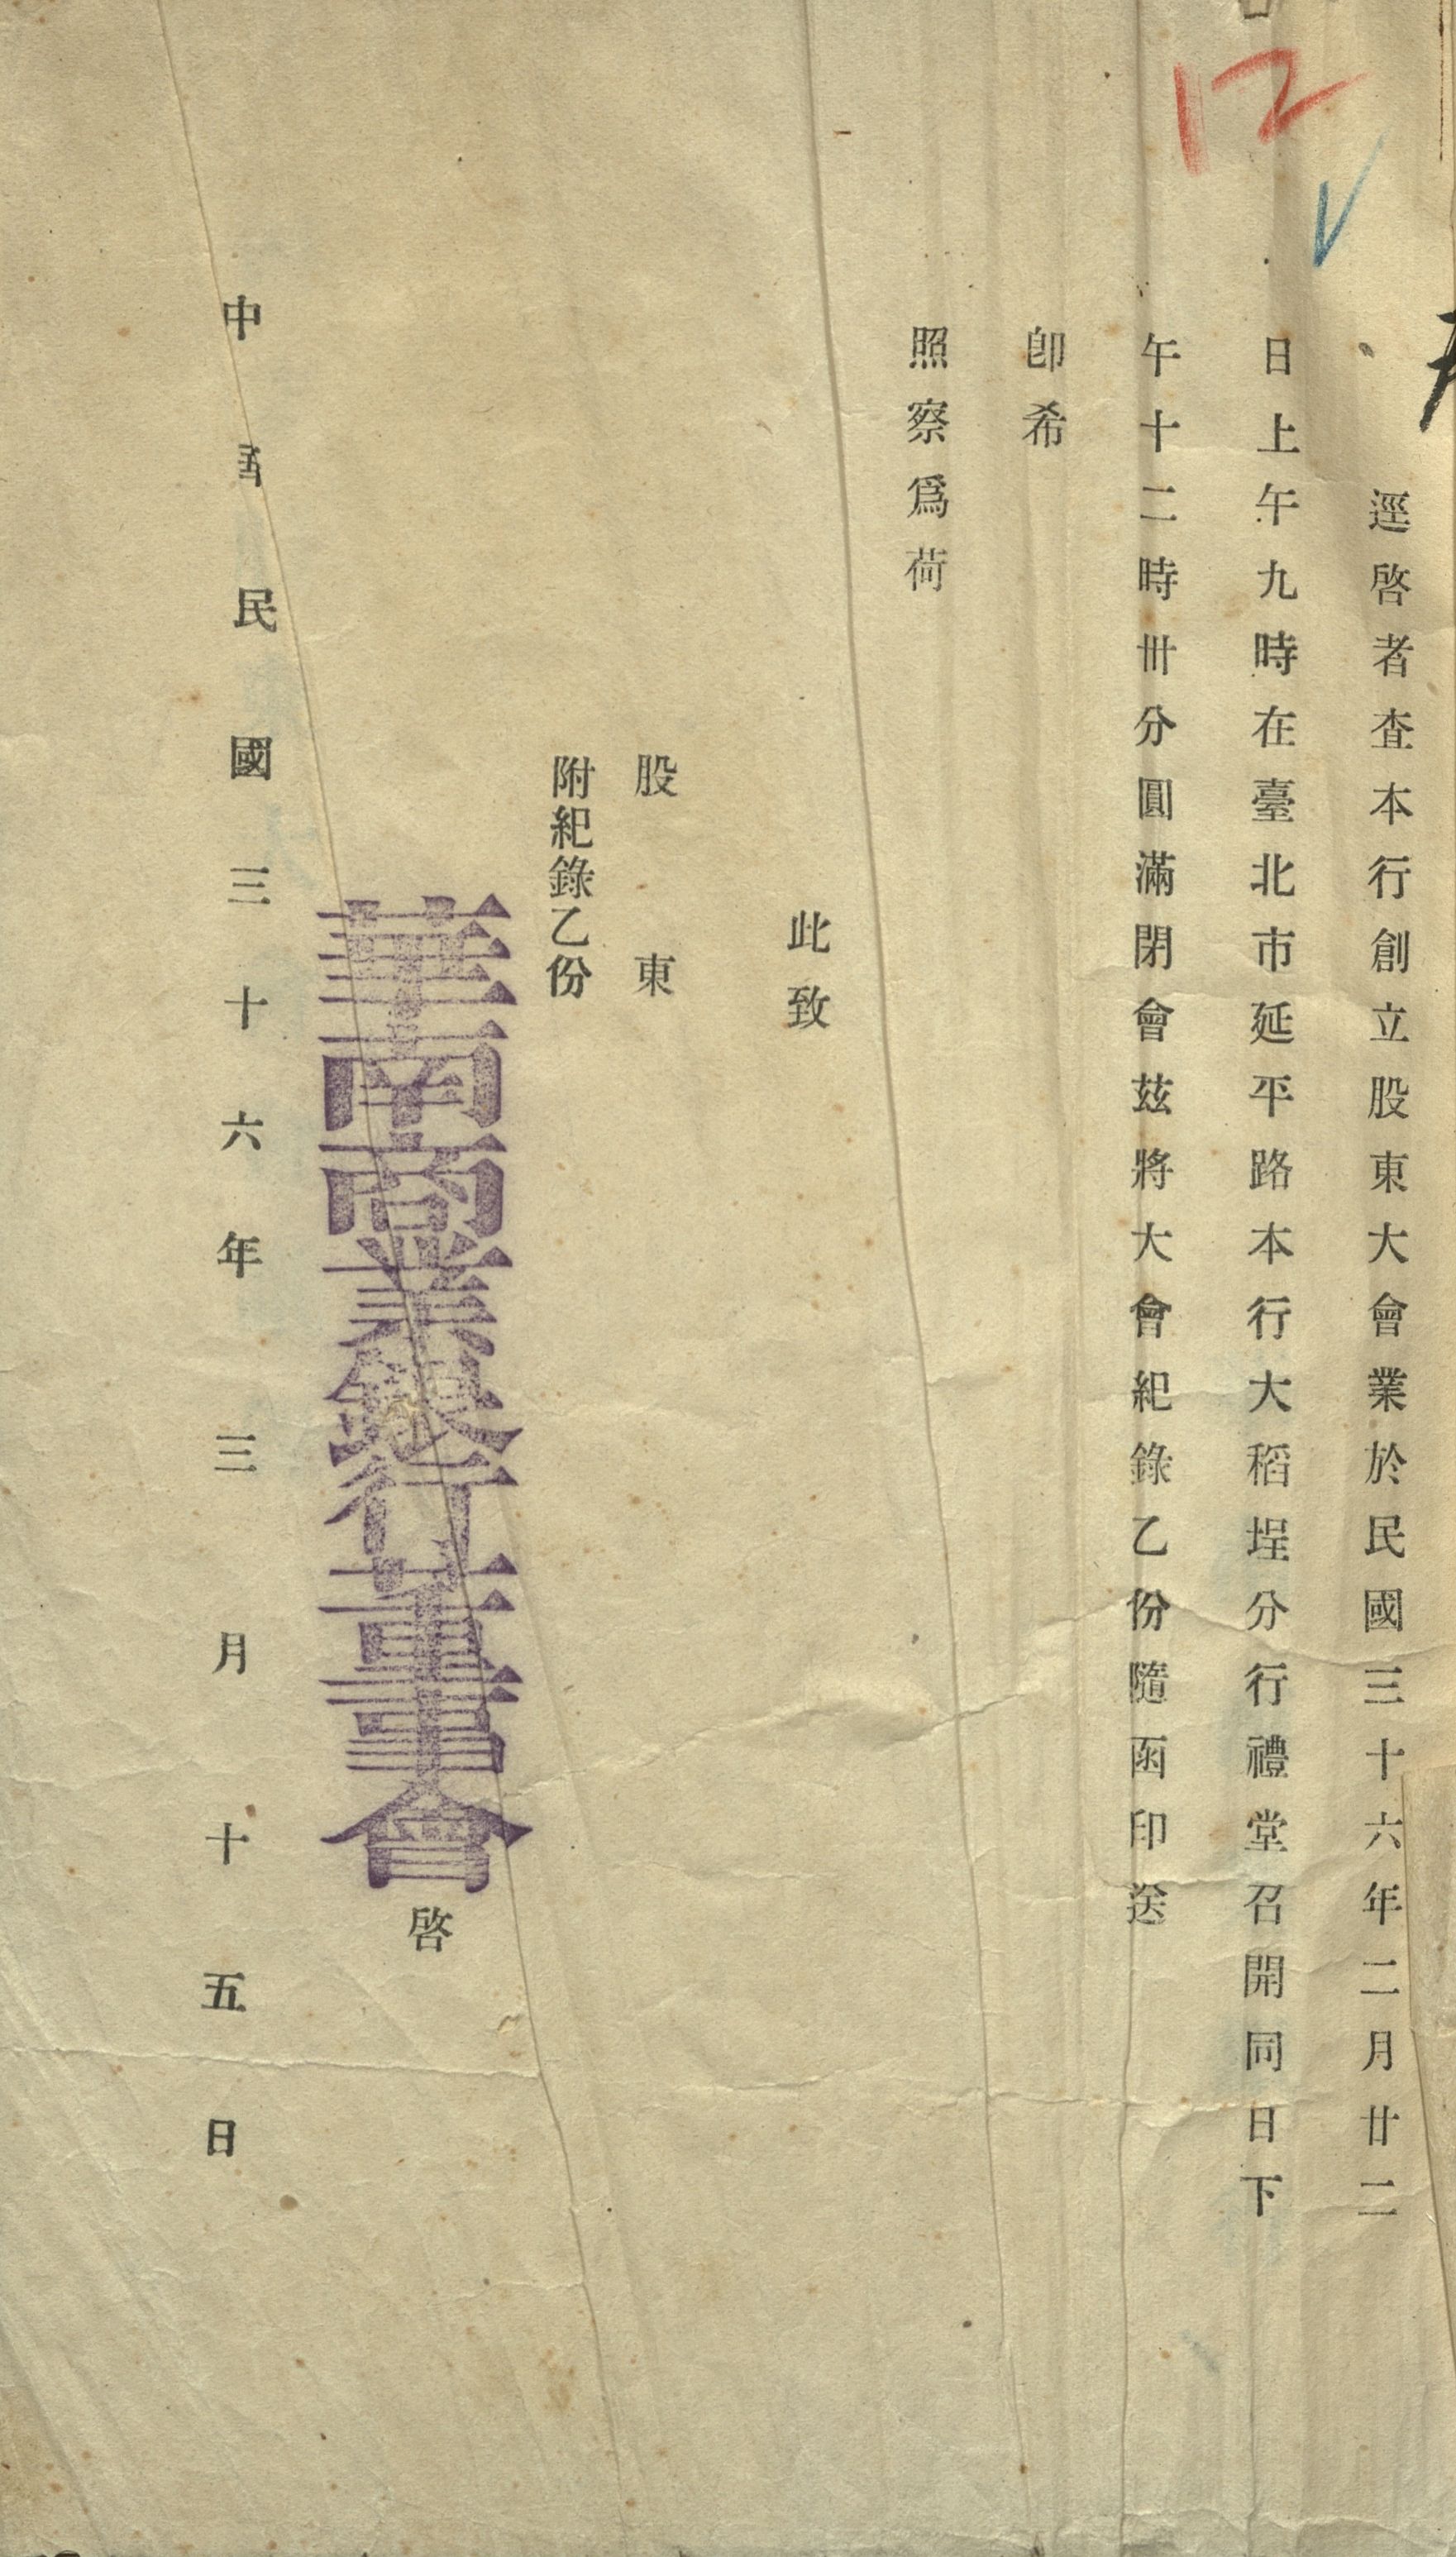 12
逕啓者査本行創立股東大會業於民國三十六年二月廿二
日上午九時在臺北市延平路本行大稻埕分行禮堂召開同日下
午十二時卅分圓滿閉會茲將大會紀錄乙份隨函印送
卽希
照察爲荷
此致
股東
附紀錄乙份
華南商業銀行董事會啓
中華民國三十六年三月十五日